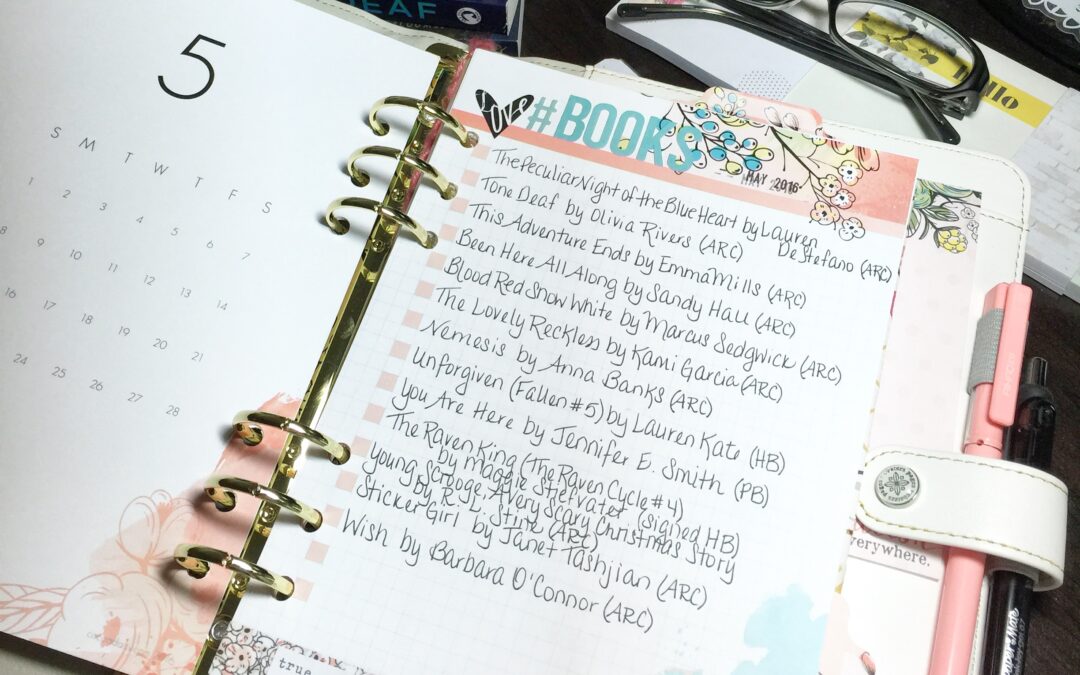 EAF
5
S M T W T F S
1 2 3 4 5 6 7
8 9 10 11 12 13 14
16 17 18 19 20 21
24 25 26 27 28
LOVE
#BOOKS
MAY 2016
The Peculiar Night of the Blue Heart by Lauren
DeStefano (ARC)
Tone Deaf by Olivia Rivers (ARC)
This Adventure Ends by Emma Mills (ARC)
Been Here All Along by Sandy Hall (ARC)
Blood Red Snow White by Marcus Sedgwick (ARC)
The Lovely Reckless by Kami Garcia (ARC)
Nemesis by Anna Banks (ARC)
Unforgiven (Fallen #5) by Lauren Kate (HB)
You Are Here by Jennifer E. Smith (PB)
The Raven King (The Raven Cycle #4)
by Maggie Stiefvater (Signed HB)
Young Scrooge: A Very Scary Christmas Story
by R.L. Stine (ARC)
Sticker Girl by Janet Tashjian (ARC)
Wish by Barbara O'Connor (ARC)
true
hello
verywhere.